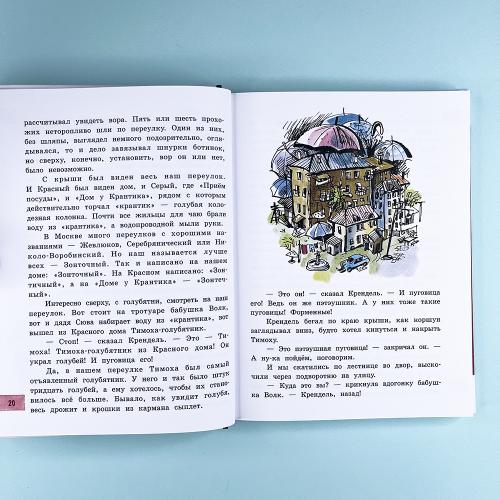 рассчитывал увидеть вора. Пять или шесть прохо-
жих неторопливо шли по переулку. Один из них,
без шляпы, выглядел немного подозрительно, огля-
дывался, то и дело завязывал шнурки ботинок,
но сверху, конечно, установить, вор он или нет,
было невозможно.
С крыши был виден весь наш переулок.
И Красный был виден дом, и Серый, где «Приём
посуды», и «Дом у Крантика», рядом с которым
действительно торчал «крантик» — голубая коло-
дезная колонка. Почти все жильцы для чаю брали
воду из «крантика», а водопроводной мыли руки.
В Москве много переулков с хорошими наз-
ваниями — Жевлюков, Серебрянический или Ни-
коло-Воробинский. Но наш называется лучше
всех — Зонточный. Так и написано на нашем
доме: «Зонточный». На Красном написано: «Зон-
тичный», а на «Доме у Крантика» — «Зонтеч-
ный».
Интересно сверху, с голубятни, смотреть на наш
переулок. Вот стоит на тротуаре бабушка Волк,
вот и дядя Сюва набирает воду из «крантика», вот
вышел из Красного дома Тимоха-голубятник.
— Стоп! — сказал Крендель. — Это — Ти-
моха! Тимоха-голубятник из Красного дома! Он
украл голубей! И пуговица его!
Да, а нашем переулке Тимоха был самый
отъявленный голубятник. У него и так было штук
тридцать голубей, а ему хотелось, чтобы их стано-
вилось всё больше. Бывало, как увидит голубя,
весь дрожит и крошки из кармана сыплет.
20
— Это он! — сказал Крендель. — И пуговица
его! Ведь он же пэтэушник. А у них тоже такие
пуговицы! Форменные!
Крендель бегал по краю крыши, как коршун
заглядывал вниз, будто хотел кинуться и накрыть
Тимоху.
— Это пэтэушная пуговица! — закричал он. —
А ну-ка пойдём, поговорим.
И мы скатились по лестнице во двор, выско-
чили через подворотню на улицу.
— Куда это вы? — крикнула вдогонку бабуш-
ка Волк. — Крендель, назад!